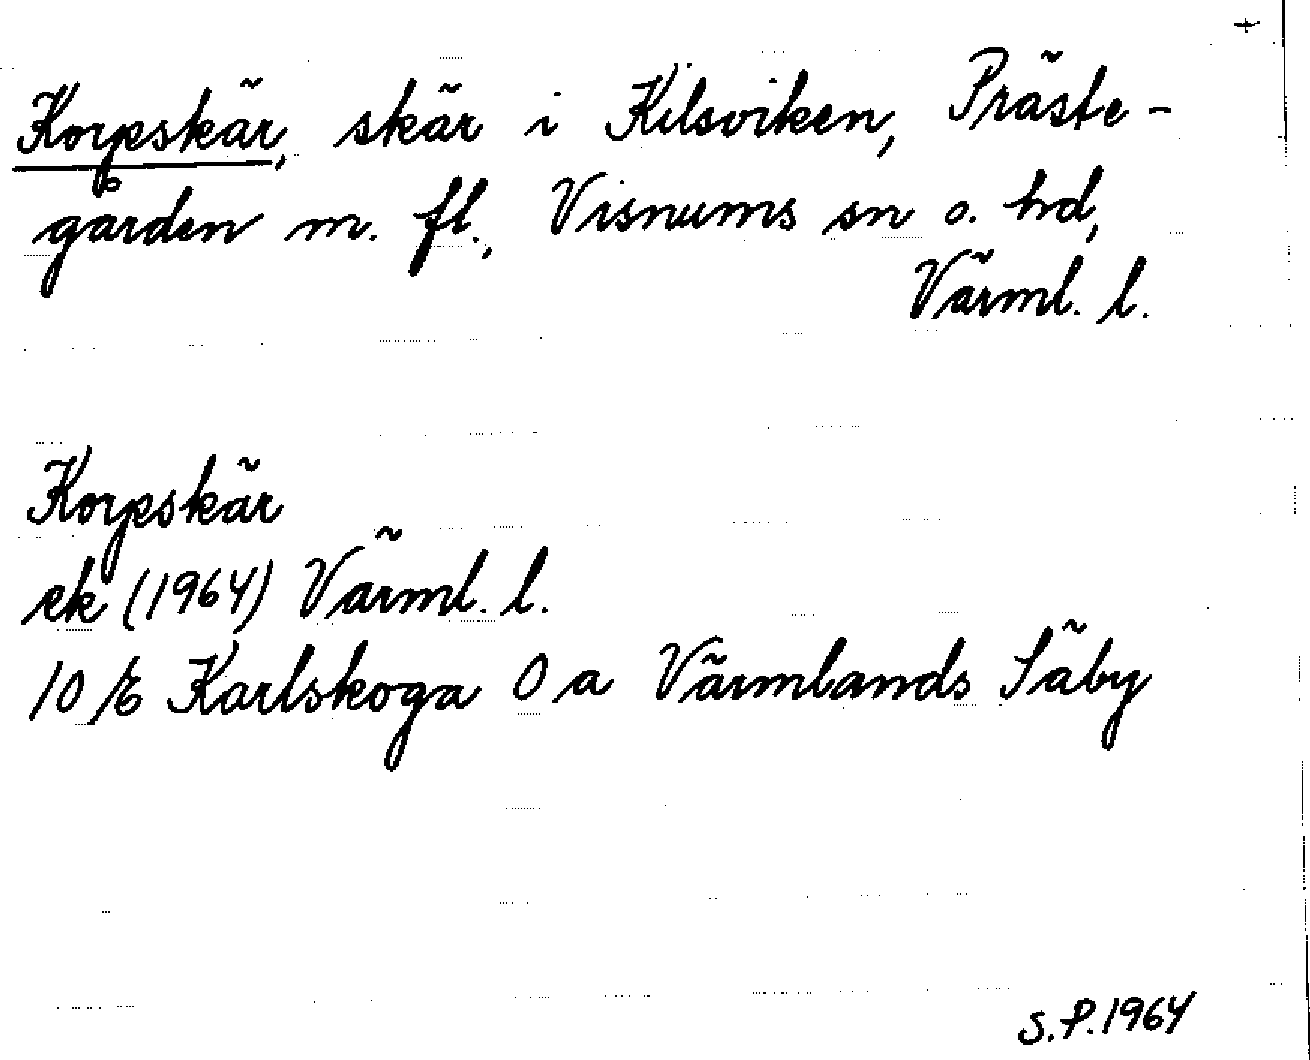 +
Korpeskär, skär i Kilsviken, Präste-
gården m. fl., Visnums sn o. hd,
Värml. l.
Korpeskär
ek (1964) Värml. l.
10 E Karlskoga 0 a Värmlands Säby
S.P. 1964